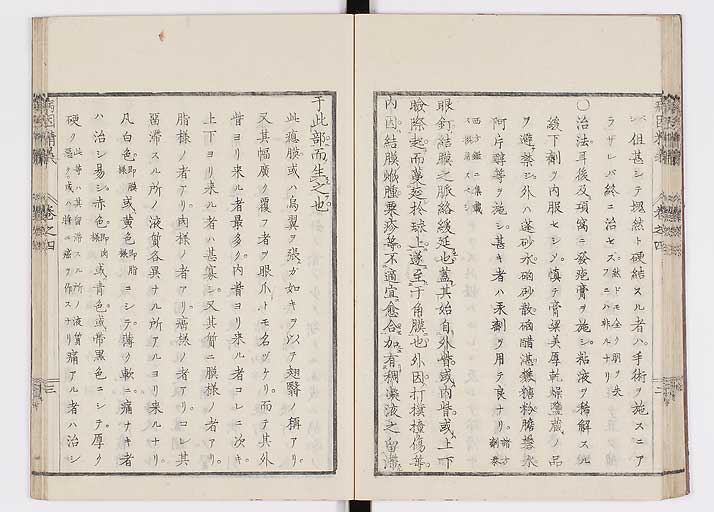 但甚シキ塊然ト硬結スル者ハ手術ヲ施スニア
ラザレバ終ニ治セズ
〇治法耳後及項窩ニ發疱膏ヲ施シ粘液ヲ稀解スル
緩下劑ヲ内服セシメ慎テ膏粱美厚乾燥鹽蔵ノ品
ヲ避禁シ外ハ蓬砂水硇砂散硇醋湛礬糖粉膽礬水
阿片罨等ヲ施シ甚キ者ハ汞劑ヲ用テ良ナリ
眼釘結膜之脈絡緩延也蓋其始自外眥或内眥或上下
瞼際起而蔓延於球上遂至于角膜也外因打撲撞傷等
内因結膜焮腫粟疹等不適宜愈合加有稠凝液之留滯
于此部而生之也
此瘜膜或ハ鳥翼ヲ張ガ如キヲ以テ翅翳ノ稱アリ
又其幅廣ク覆フ者ヲ眼爪トモ名ヅケリ而テ其外
眥ヨリ来ル者最多ク内眥ヨリ来ル者コレニ次キ
上下ヨリ来ル者ハ甚寡シ又其質ニ膜様ノ者アリ
脂様ノ者アリ肉様ノ者アリ癌様ノ者アリコレ其
留滞スル所ノ液質各異ナル所アルヨリ来ルナリ
凡白色即膜様或黄色即脂様ニシテ薄ク軟ニ痛ナキ者
ハ治シ易シ赤色即肉様或青色或帶黒色ニシテ厚ク
硬ク痛アル者ハ治シ
卷之四
三